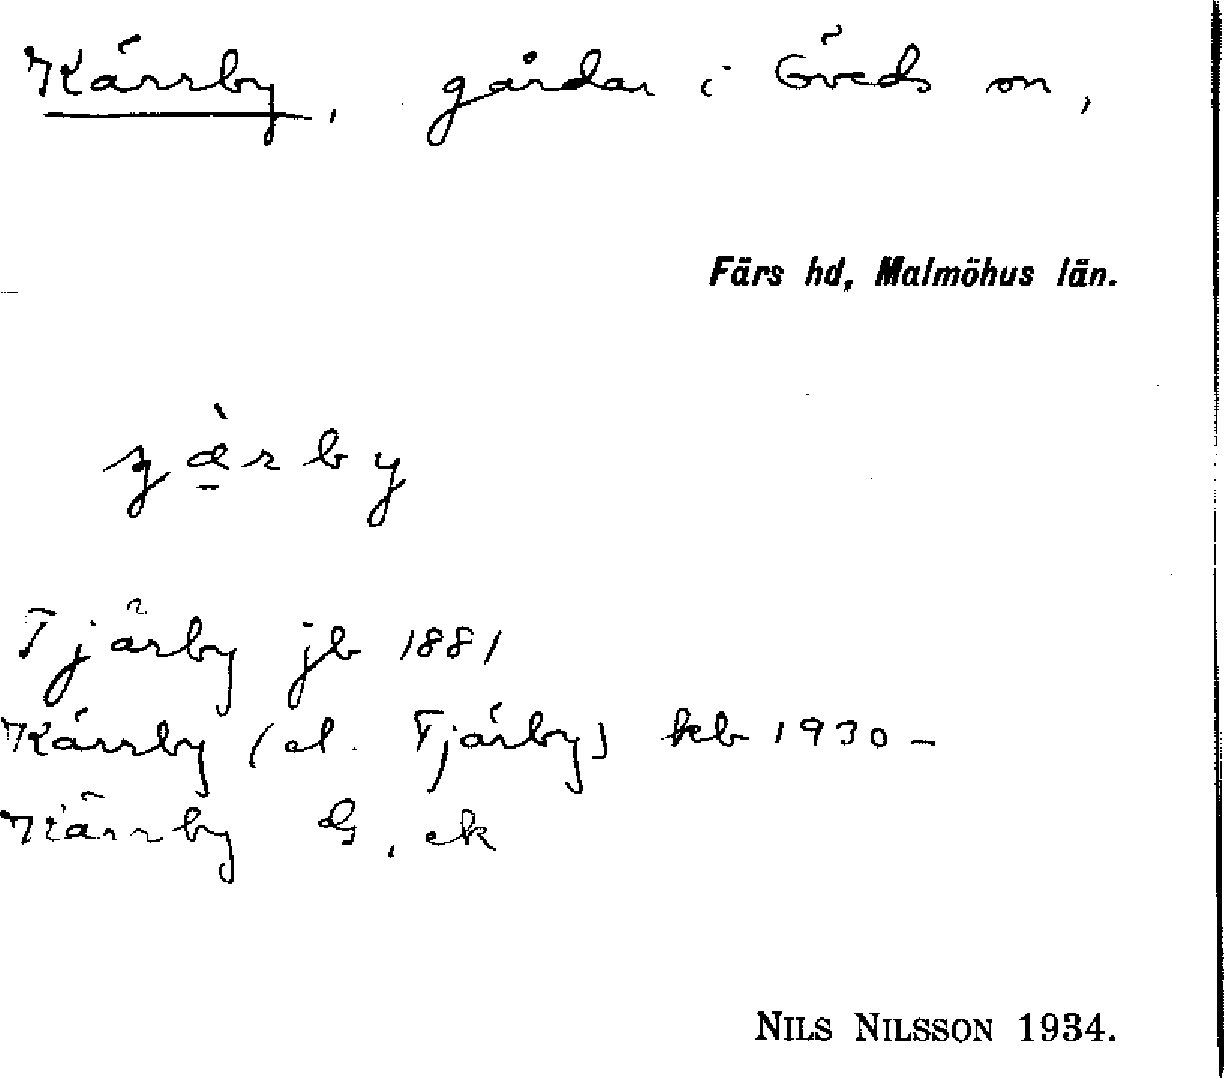 Kärrby, gårdar i Öveds sn,
Färs hd, Malmöhus län.
Tjärby jb 1881
Kärrby (el. Tjärby) kb 1930 –
Kärrby G, ek
NILS NILSSON 1934.